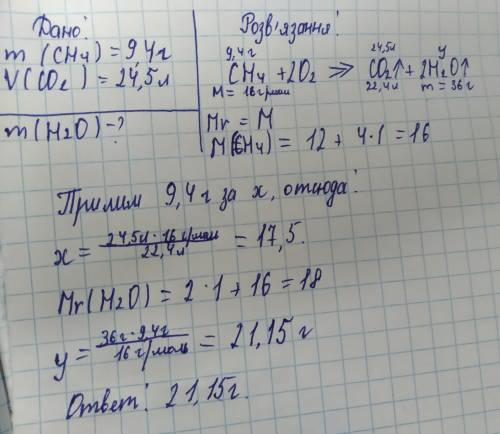 Дано:
m (CH4) = 9,4г
V(CO2) = 24,5л
m(H2O) -?
Розв'язання:
9,4г 24,5л y
CH4 + 2O2 ⇒ CO2↑ + 2H2O↑
M = 16г/моль 22,4л m = 36г
Mr = M
M(CH4) = 12 + 4·1 = 16
Приним 9,4г за x, отсюда:
x = 24,5л · 16 г/моль / 22,4л = 17,5.
Mr(H2O) = 2·1 + 16 = 18
y = 36г · 9,4г / 16 г/моль = 21,15 г
Ответ: 21,15г.